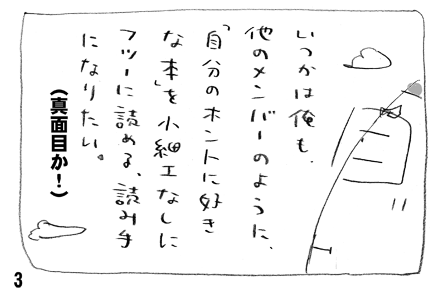 いつかは俺も、
他のメンバーのように、
「自分のホントに好き
な本」を小細工なしに
フツーに読める、読み手
になりたい。
(真面目か!)
3